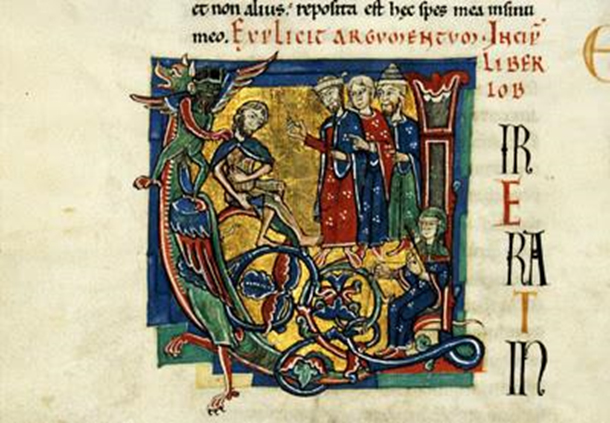 et non alius: reposita est hec spes mea insinu
meo. Explicit argumentum. Incip̄
LIBER
IOB
VIR
E
RAT
IN